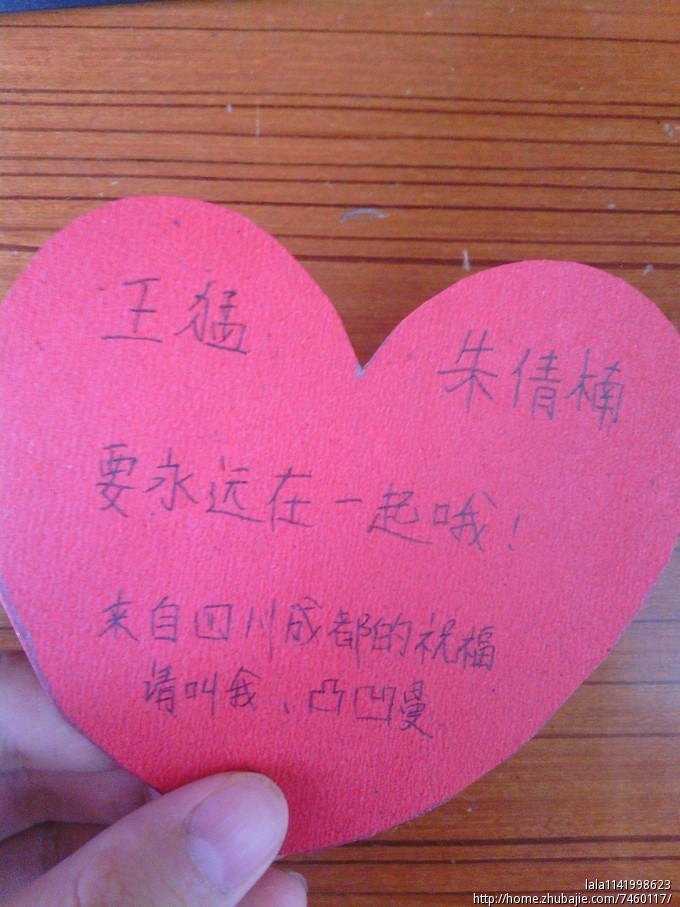 王猛
朱倩楠
要永远在一起哦!
来自四川成都的祝福
请叫我、凸凹曼
lala1141998623
http://home.zhubajie.com/7460117/